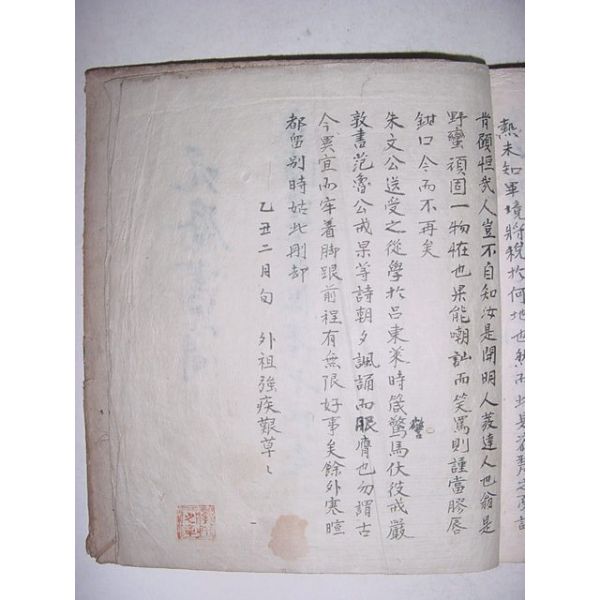 熱未知軍境將稅於何地也
肯顧恒武人豈不自知汝是開明人義達人也翁是
野蠻頑固一物恠也果能嘲訕而笑罵則謹當膠唇
鉗口今而不再矣
朱文公送受之從學於呂東萊時箴驚馬伏櫪戒嚴
敦書范魯公戒果等詩朝夕諷誦而服膺也勿謂古
今異宜而牢着脚跟前程有無限好事矣餘外寒暄
都留別時姑此刪却
乙丑二月旬 外祖強疾艱草